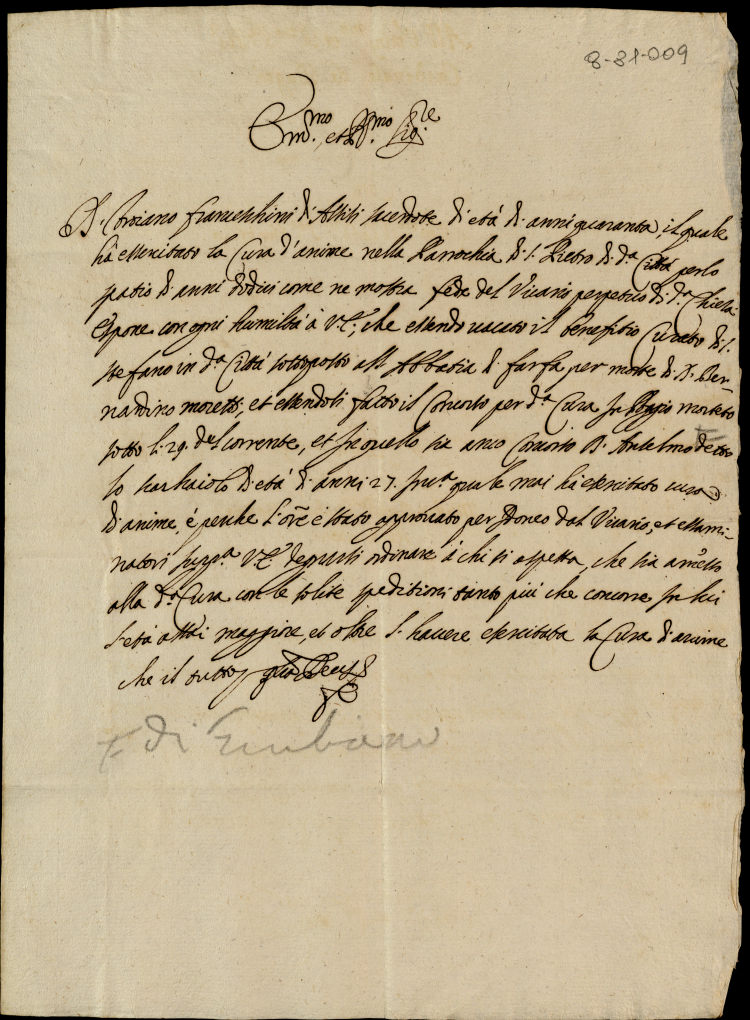 8-81-009
Em.mo et R.mo Sig.re
D. Troiano franceschini d'Assisi sacerdote di età di anni quaranta, il quale
ha essercitato la Cura d'anime nella Parrochia di S. Pietro di d.a Città per lo
spatio di anni dodici come ne mostra fede del Vicario perpetuo di d.a Chiesa
Espone con ogni humiltà à V.E., che essendo vacato il benefitio Curato di S.
stefano in d.a Città sottoposto all'Abbadia di farfa per morte di D. Ber-
nardino moretti, et essendosi fatto il Concorso per d.a Cura in Poggio mirteto
sotto li 29. del corrente, et in quello sia anco Concorso D. Anselmo detto
lo di età di anni 27. quale mai ha esercitato cura
di anime, è perche l'ore è stato approvato per Idoneo dal Vicario, et essami-
natori supp.a V.E. degnarsi ordinare à chi si aspetta, che sia amesso
alla d.a Cura con le solite speditioni tanto più che concorre in lui
l'età assai maggiore, et oltre l'havere esercitata la Cura d'anime
che il tutto
di